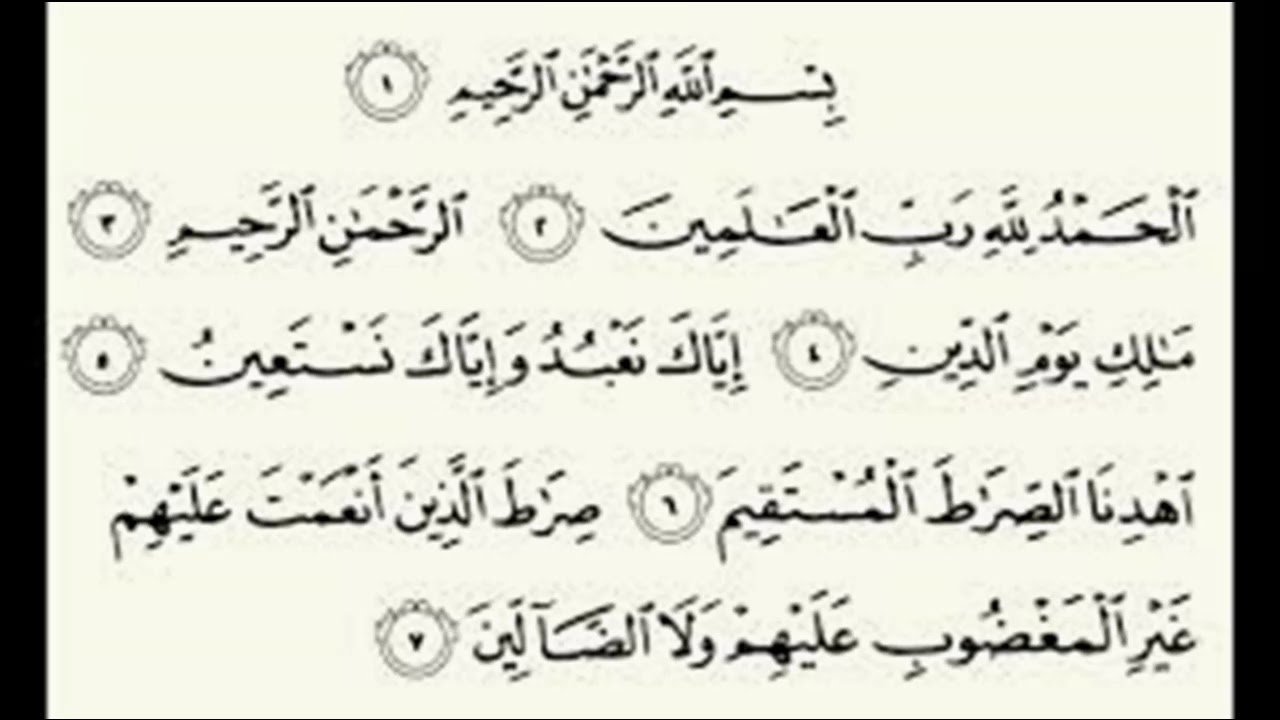 بِسْمِ ٱللَّهِ ٱلرَّحْمَٰنِ ٱلرَّحِيمِ ١
ٱلْحَمْدُ لِلَّهِ رَبِّ ٱلْعَـٰلَمِينَ ٢ ٱلرَّحْمَـٰنِ ٱلرَّحِيمِ ٣
مَـٰلِكِ يَوْمِ ٱلدِّينِ ٤ إِيَّاكَ نَعْبُدُ وَإِيَّاكَ نَسْتَعِينُ ٥
ٱهْدِنَا ٱلصِّرَٰطَ ٱلْمُسْتَقِيمَ ٦ صِرَٰطَ ٱلَّذِينَ أَنْعَمْتَ عَلَيْهِمْ
غَيْرِ ٱلْمَغْضُوبِ عَلَيْهِمْ وَلَا ٱلضَّآلِّينَ ٧